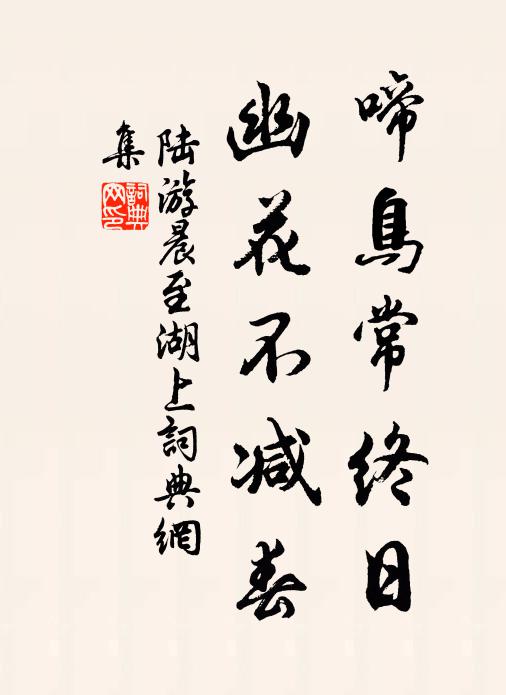 啼鳥常終日
幽花不減春
陸游晨至湖上詞典網
集
詞典
网印